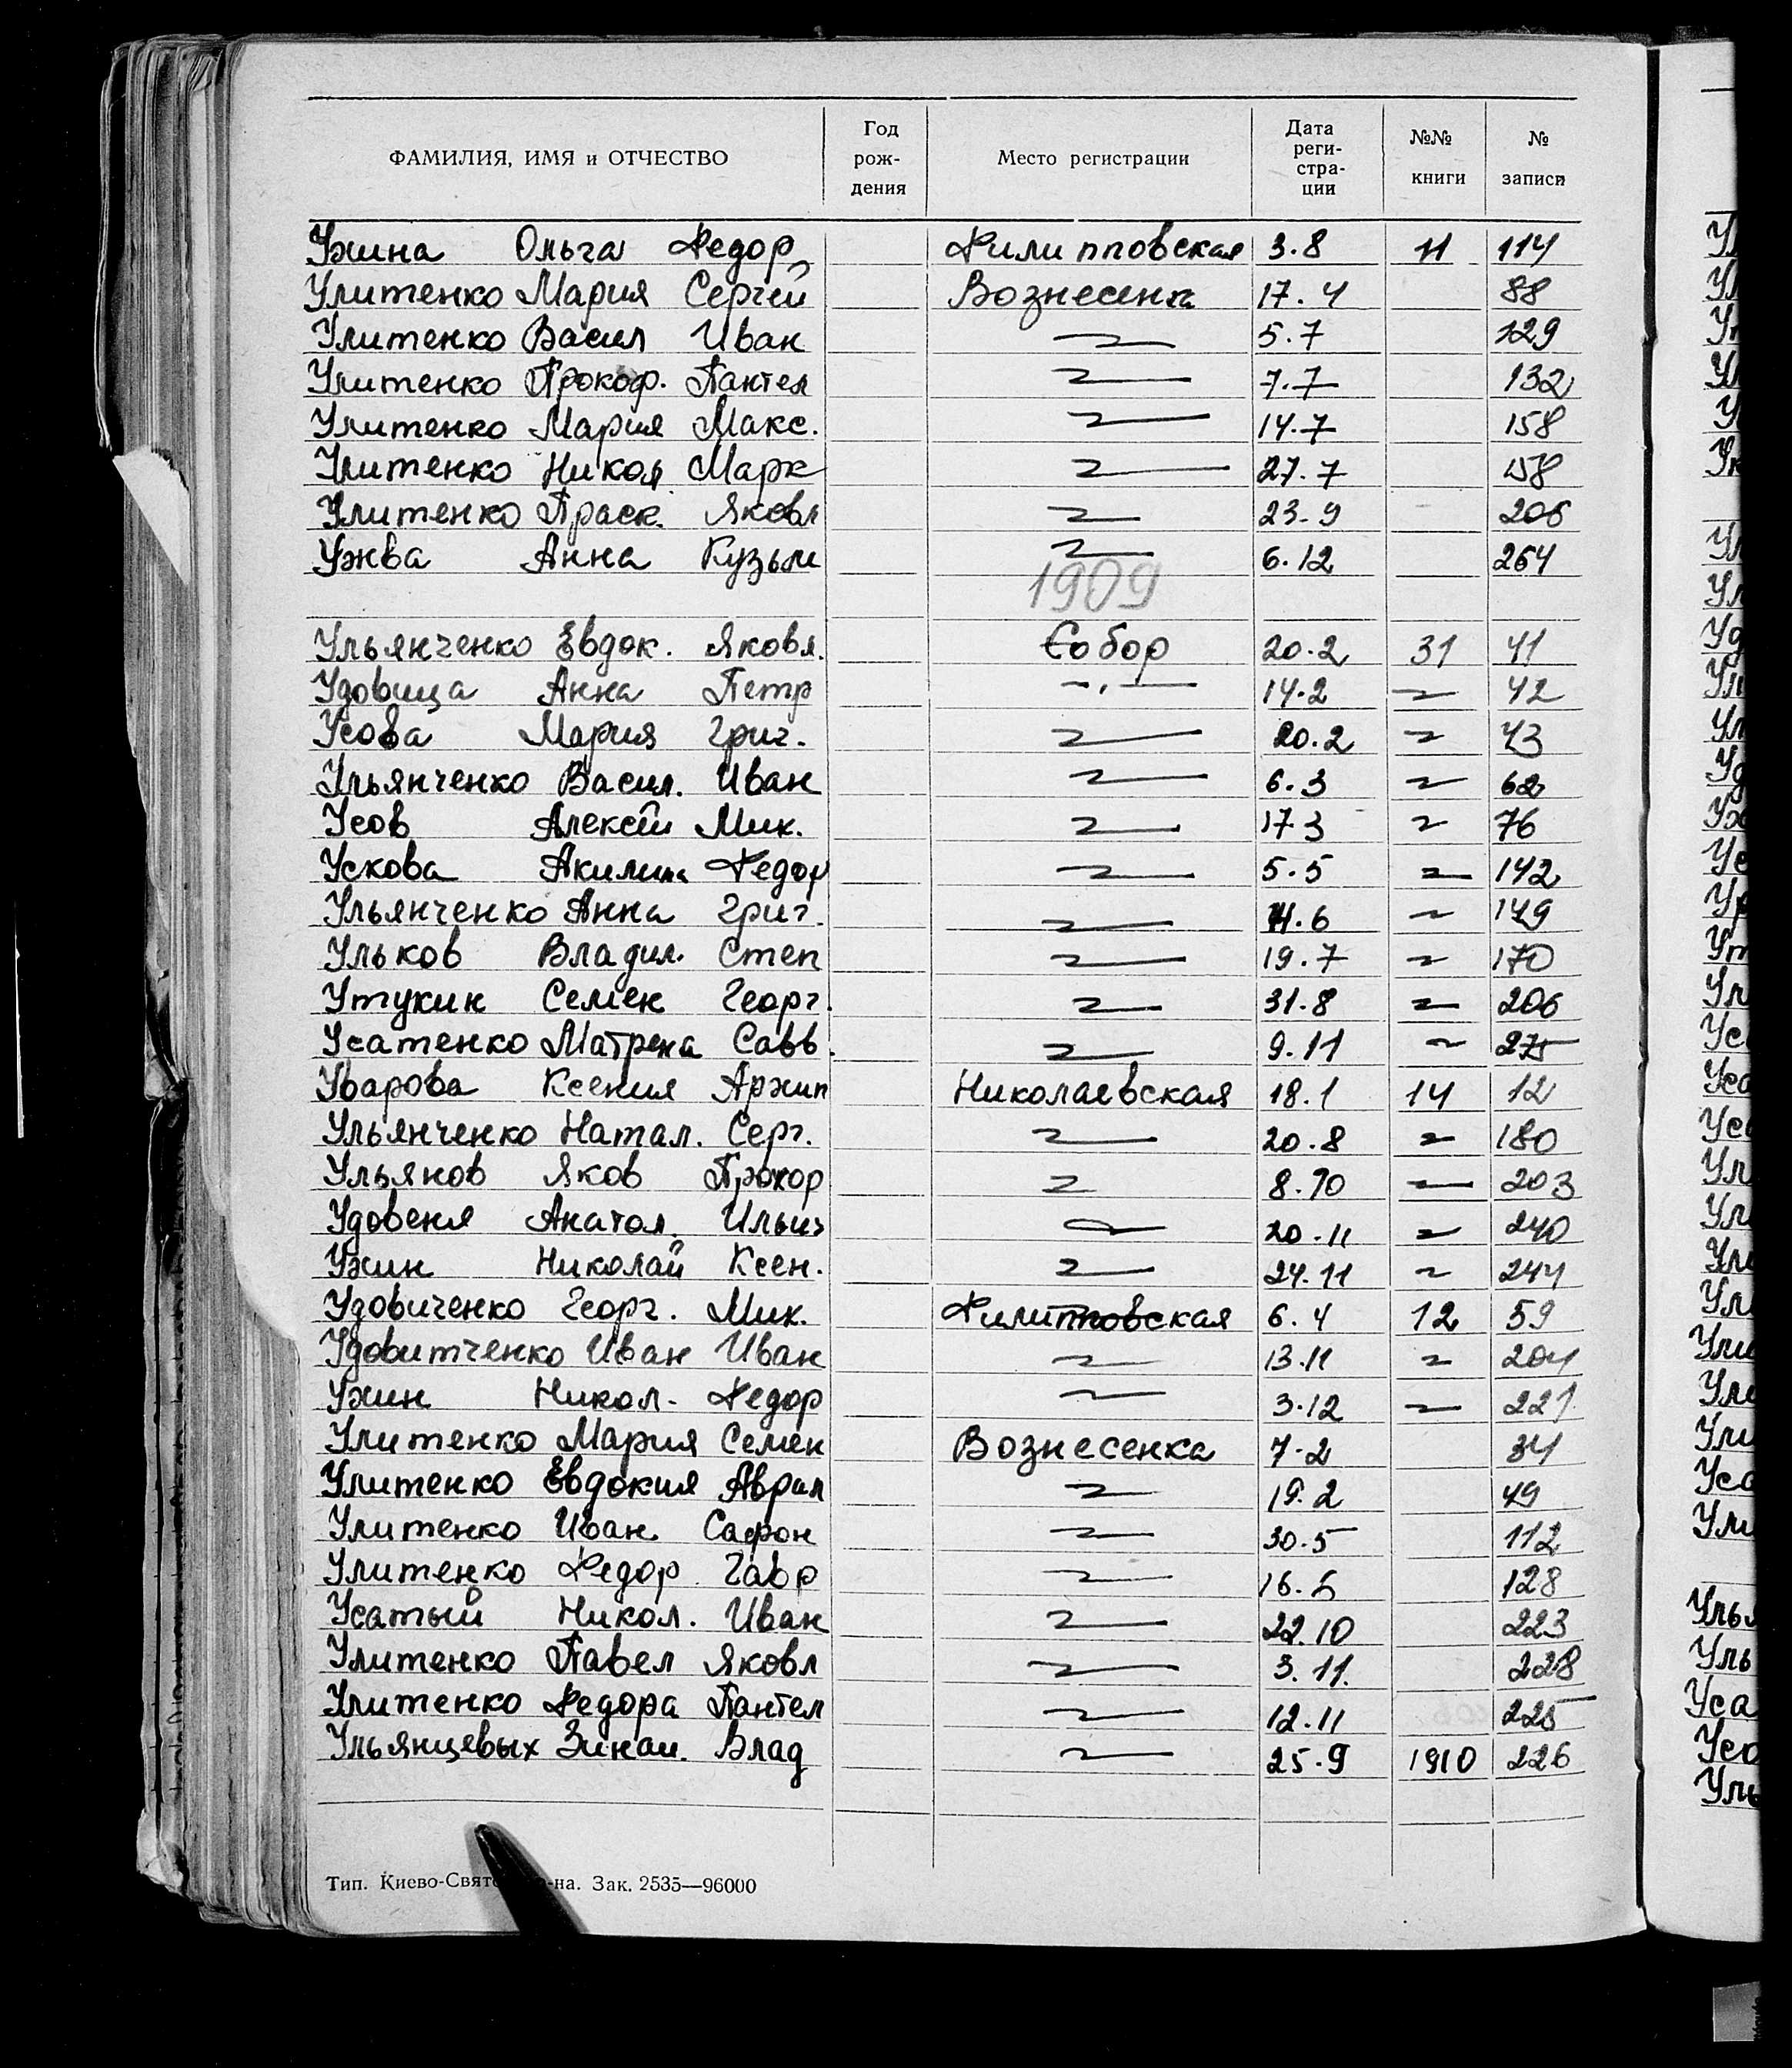 ФАМИЛИЯ, ИМЯ и ОТЧЕСТВО Год рож- дения Место регистрации Дата реги- стра- ции №№ книги № записи
Ужина Ольга Федор Филипповская 3.8 11 114
Улитенко Мария Сергей Вознесенка 17.4 88
Улитенко Васил Иван 〃 5.7 129
Улитенко Прокоф. Пантел 〃 7.7 132
Улитенко Мария Макс. 〃 14.7 158
Улитенко Никол Марк 〃 27.7 158
Улитенко Праск. Яковл 〃 23.9 206
Ужва Анна Кузьм 〃 6.12 264
1909
Ульянченко Евдок. Яковл. Собор 20.2 31 41
Удовица Анна Петр 〃 14.2 〃 42
Усова Мария Григ. 〃 20.2 〃 43
Ульянченко Васил. Иван 〃 6.3 〃 62
Усов Алексей Мих. 〃 17 3 〃 76
Ускова Акилина Федор 〃 5.5 〃 142
Ульянченко Анна Григ. 〃 〃 149
Ульков Владим. Степ 〃 19.7 〃 170
Утукин Семен Георг. 〃 31.8 〃 206
Усатенко Матрена Савв. 〃 9.11 〃 275
Уварова Ксения Архип Николаевская 18.1 14 12
Ульянченко Натал. Серг. 〃 20.8 〃 180
Ульянов Яков Прохор 〃 8.10 〃 203
Удовеня Анатол. Ильич 〃 20.11 〃 240
Ужин Николай Ксен. 〃 24.11 〃 244
Удовиченко Георг. Мих. Филипповская 6.4 12 59
Удовитченко Иван Иван 〃 13.11 〃 204
Ужин Никол. Федор 〃 3.12 〃 221
Улитенко Мария Семен Вознесенка 7.2 34
Улитенко Евдокия Аврам 〃 19.2 49
Улитенко Иван Сафон 〃 30.5 112
Улитенко Федор Гавр 〃 128
Усатый Никол. Иван 〃 22.10 223
Улитенко Павел Яковл 〃 3.11. 228
Улитенко Федора Пантел 〃 12.11 225
Ульянцевых Зинаи. Влад 〃 25.9 1910 226
Тип. Киево-Свято -на. Зак. 2535—96000